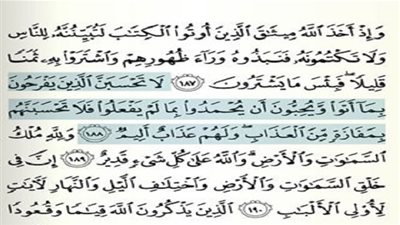 وَإِذْ أَخَذَ اللَّهُ مِيثَاقَ الَّذِينَ أُوتُوا الْكِتَابَ لَتُبَيِّنُنَّهُ لِلنَّاسِ
وَلَا تَكْتُمُونَهُ فَنَبَذُوهُ وَرَاءَ ظُهُورِهِمْ وَاشْتَرَوْا بِهِ ثَمَنًا
قَلِيلًا فَبِئْسَ مَا يَشْتَرُونَ ١٨٧ لَا تَحْسَبَنَّ الَّذِينَ يَفْرَحُونَ
بِمَا أَتَوا وَّيُحِبُّونَ أَن يُحْمَدُوا بِمَا لَمْ يَفْعَلُوا فَلَا تَحْسَبَنَّهُم
بِمَفَازَةٍ مِّنَ الْعَذَابِ وَلَهُمْ عَذَابٌ أَلِيمٌ ١٨٨ وَلِلَّهِ مُلْكُ
السَّمَاوَاتِ وَالْأَرْضِ وَاللَّهُ عَلَىٰ كُلِّ شَيْءٍ قَدِيرٌ ١٨٩ إِنَّ فِي
خَلْقِ السَّمَاوَاتِ وَالْأَرْضِ وَاخْتِلَافِ اللَّيْلِ وَالنَّهَارِ لَآيَاتٍ
لِّأُولِي الْأَلْبَابِ ١٩٠ الَّذِينَ يَذْكُرُونَ اللَّهَ قِيَامًا وَقُعُودًا